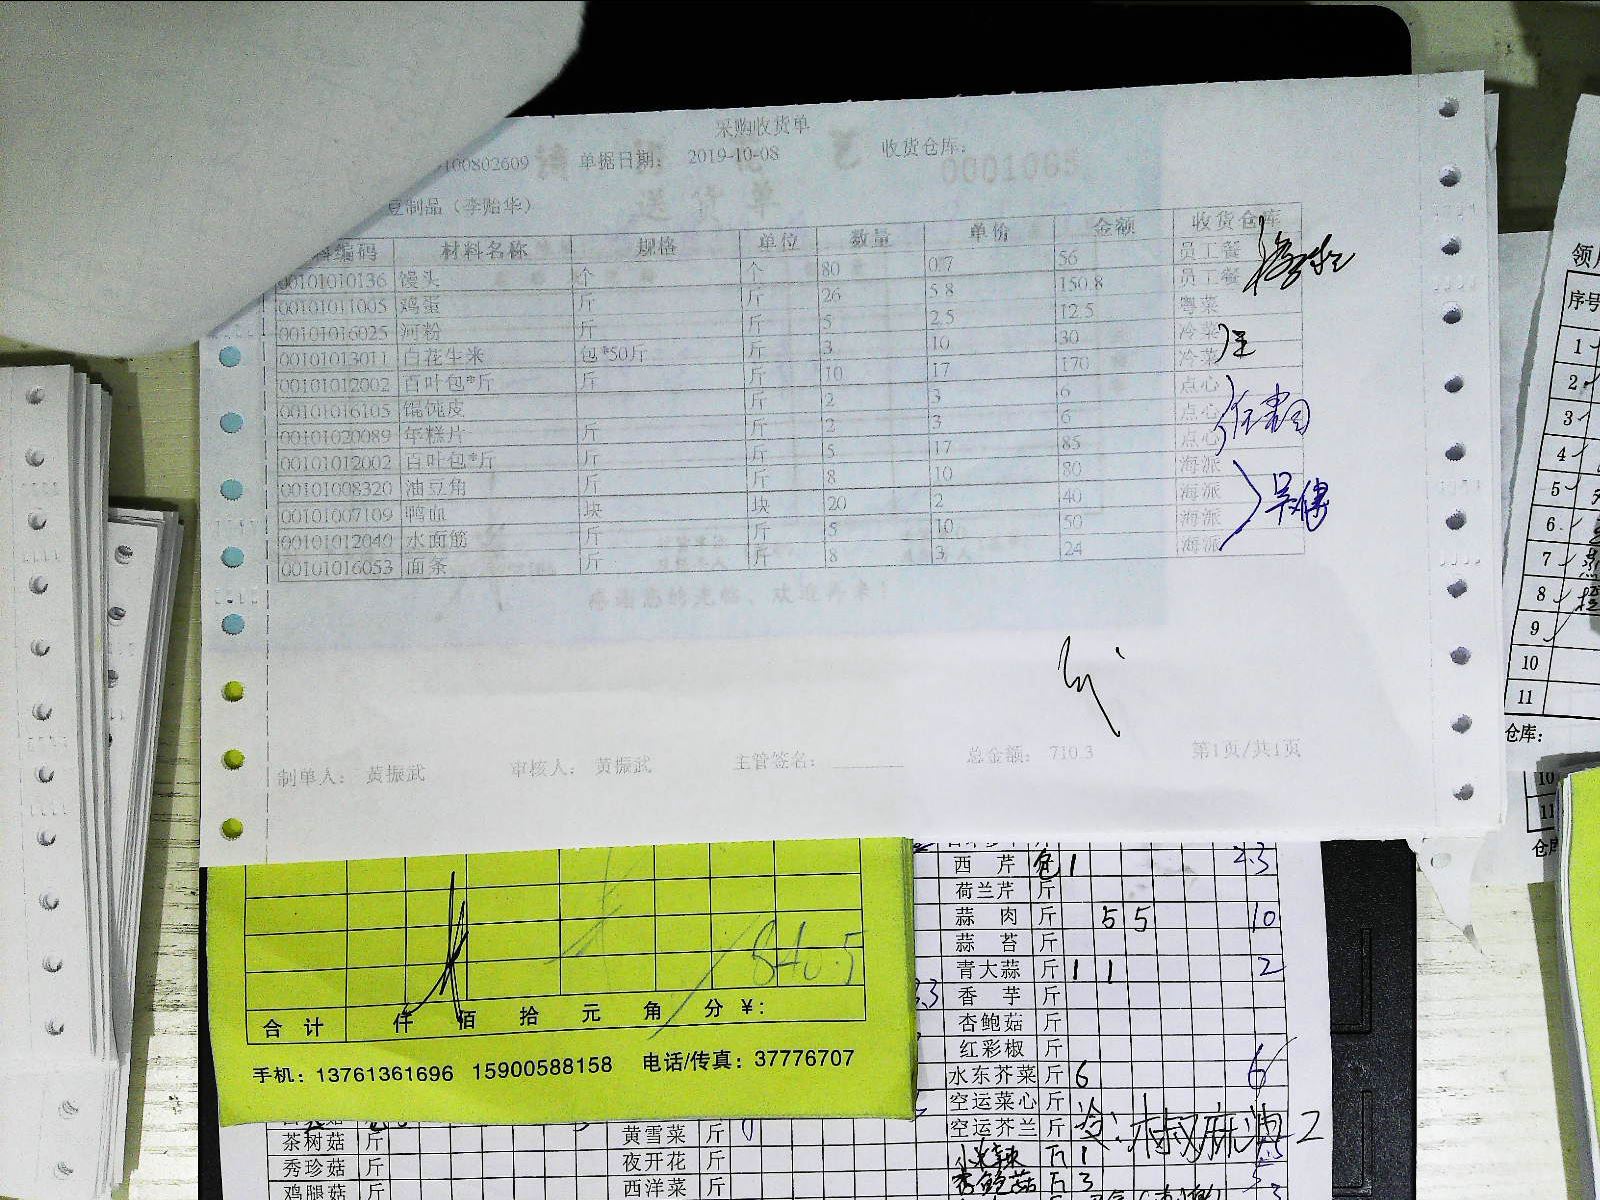 采购收货单
100802609 单据日期: 2019-10-08 收货仓库:
0001065
送货单
豆制品（李贻华）
编码 材料名称 规格 单位 数量 单价 金额 收货仓库
00101010136 馒头 个 个 80 0.7 56 员工餐
00101011005 鸡蛋 斤 斤 26 5.8 150.8 员工餐
00101016025 河粉 斤 斤 5 2.5 12.5 粤菜
00101013011 白花生米 包*50斤 斤 3 10 30 冷菜
00101012002 百叶包*斤 斤 斤 10 17 170 冷菜
00101016105 馄饨皮 斤 2 3 6 点心
00101020089 年糕片 斤 斤 2 3 6 点心
00101012002 百叶包*斤 斤 斤 5 17 85 点心
00101008320 油豆角 斤 斤 8 10 80 海派
00101007109 鸭血 块 块 20 2 40 海派
00101012040 水面筋 斤 斤 5 10 50 海派
00101016053 面条 斤 斤 8 3 24 海派
感谢您的光临、欢迎再来！
制单人: 黄振武 审核人: 黄振武 主管签名: 总金额: 710.3 第1页/共1页
840.5
合计 仟 佰 拾 元 角 分 ¥:
手机: 13761361696 15900588158 电话/传真: 37776707
西芹 包 1 2.3
荷兰芹 斤
蒜肉 斤 5 5 10
蒜苔 斤
青大蒜 斤 1 1 2
香芋 斤
杏鲍菇 斤
红彩椒 斤
水东芥菜 斤 6 6
空运菜心 斤
空运芥兰 斤
茶树菇 斤 黄雪菜 斤
秀珍菇 斤 夜开花 斤
鸡腿菇 斤 西洋菜 斤
序号
1
2
3
4
5
6
7
8
9
10
11
仓库:
10
11
仓库